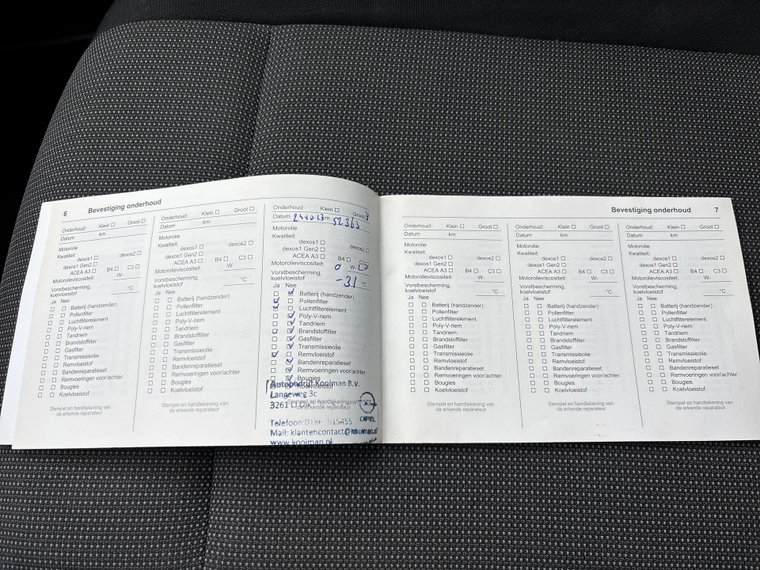 6 Bevestiging onderhoud
Onderhoud: Klein Groot
Datum km
Motorolie
Kwaliteit:
dexos1 dexos2
dexos1 Gen2
ACEA A3 B4 C3
Motorolieviscositeit: W-
Vorstbescherming,
koelvloeistof °C
Ja Nee
Batterij (handzender)
Pollenfilter
Luchtfilterelement
Poly-V-riem
Tandriem
Brandstoffilter
Gasfilter
Transmissieolie
Remvloeistof
Bandenreparatieset
Remvoeringen voor/achter
Bougies
Koelvloeistof
Stempel en handtekening van
de erkende reparateur
Onderhoud: Klein Groot
Datum km
Motorolie
Kwaliteit:
dexos1 dexos2
dexos1 Gen2
ACEA A3 B4 C3
Motorolieviscositeit: W-
Vorstbescherming,
koelvloeistof °C
Ja Nee
Batterij (handzender)
Pollenfilter
Luchtfilterelement
Poly-V-riem
Tandriem
Brandstoffilter
Gasfilter
Transmissieolie
Remvloeistof
Bandenreparatieset
Remvoeringen voor/achter
Bougies
Koelvloeistof
Stempel en handtekening van
de erkende reparateur
Onderhoud: Klein Groot
Datum 52363
Motorolie
Kwaliteit:
dexos1 dexos2
dexos1 Gen2
ACEA A3 B4 C3
Motorolieviscositeit: 0 W-
Vorstbescherming,
koelvloeistof -31 °C
Ja Nee
Batterij (handzender)
Pollenfilter
Luchtfilterelement
Poly-V-riem
Tandriem
Brandstoffilter
Gasfilter
Transmissieolie
Remvloeistof
Bandenreparatieset
Remvoeringen voor/achter
Bougies
Autobedrijf Kooiman B.V.
Langeweg 3c
3261 LJ
Stempel en handtekening van
de erkende reparateur
Telefoon:
Mail: klantencontact@kooiman.nl
www.kooiman.nl
Bevestiging onderhoud 7
Onderhoud: Klein Groot
Datum km
Motorolie
Kwaliteit:
dexos1 dexos2
dexos1 Gen2
ACEA A3 B4 C3
Motorolieviscositeit: W-
Vorstbescherming,
koelvloeistof °C
Ja Nee
Batterij (handzender)
Pollenfilter
Luchtfilterelement
Poly-V-riem
Tandriem
Brandstoffilter
Gasfilter
Transmissieolie
Remvloeistof
Bandenreparatieset
Remvoeringen voor/achter
Bougies
Koelvloeistof
Stempel en handtekening van
de erkende reparateur
Onderhoud: Klein Groot
Datum km
Motorolie
Kwaliteit:
dexos1 dexos2
dexos1 Gen2
ACEA A3 B4 C3
Motorolieviscositeit: W-
Vorstbescherming,
koelvloeistof °C
Ja Nee
Batterij (handzender)
Pollenfilter
Luchtfilterelement
Poly-V-riem
Tandriem
Brandstoffilter
Gasfilter
Transmissieolie
Remvloeistof
Bandenreparatieset
Remvoeringen voor/achter
Bougies
Koelvloeistof
Stempel en handtekening van
de erkende reparateur
Onderhoud: Klein Groot
Datum km
Motorolie
Kwaliteit:
dexos1 dexos2
dexos1 Gen2
ACEA A3 B4 C3
Motorolieviscositeit: W-
Vorstbescherming,
koelvloeistof °C
Ja Nee
Batterij (handzender)
Pollenfilter
Luchtfilterelement
Poly-V-riem
Tandriem
Brandstoffilter
Gasfilter
Transmissieolie
Remvloeistof
Bandenreparatieset
Remvoeringen voor/achter
Bougies
Koelvloeistof
Stempel en handtekening van
de erkende reparateur